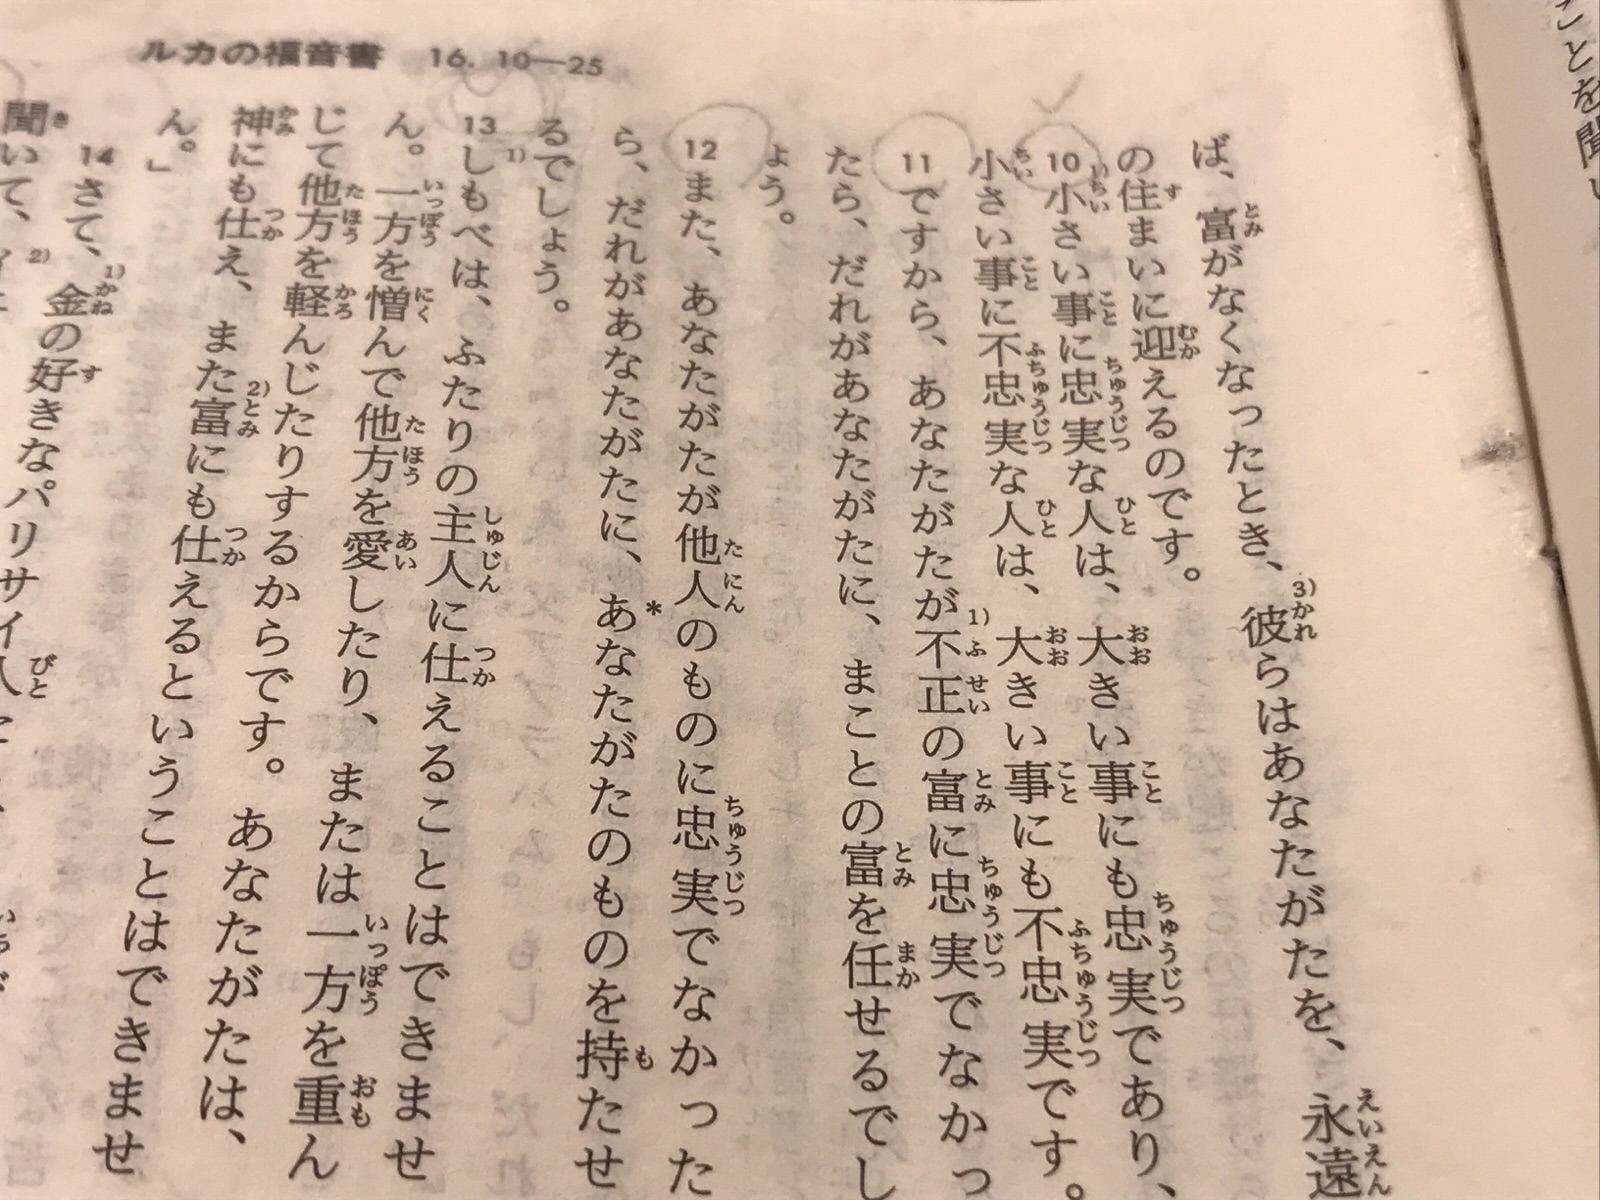 ルカの福音書 16. 10—25
ば、富がなくなったとき、3)彼らはあなたがたを、永遠
の住まいに迎えるのです。
10小さい事に忠実な人は、大きい事にも忠実であり、
小さい事に不忠実な人は、大きい事にも不忠実です。
11ですから、あなたがたが1)不正の富に忠実でなかっ
たら、だれがあなたがたに、まことの富を任せるでし
ょう。
12また、あなたがたが他人のものに忠実でなかった
ら、だれがあなたがたに、*あなたがたのものを持たせ
るでしょう。
13 1)しもべは、ふたりの主人に仕えることはできませ
ん。一方を憎んで他方を愛したり、または一方を重ん
じて他方を軽んじたりするからです。あなたがたは、
神にも仕え、また2)富にも仕えるということはできませ
ん。」
14さて、1)金の好きなパリサイ人
聞いて、
ことを聞